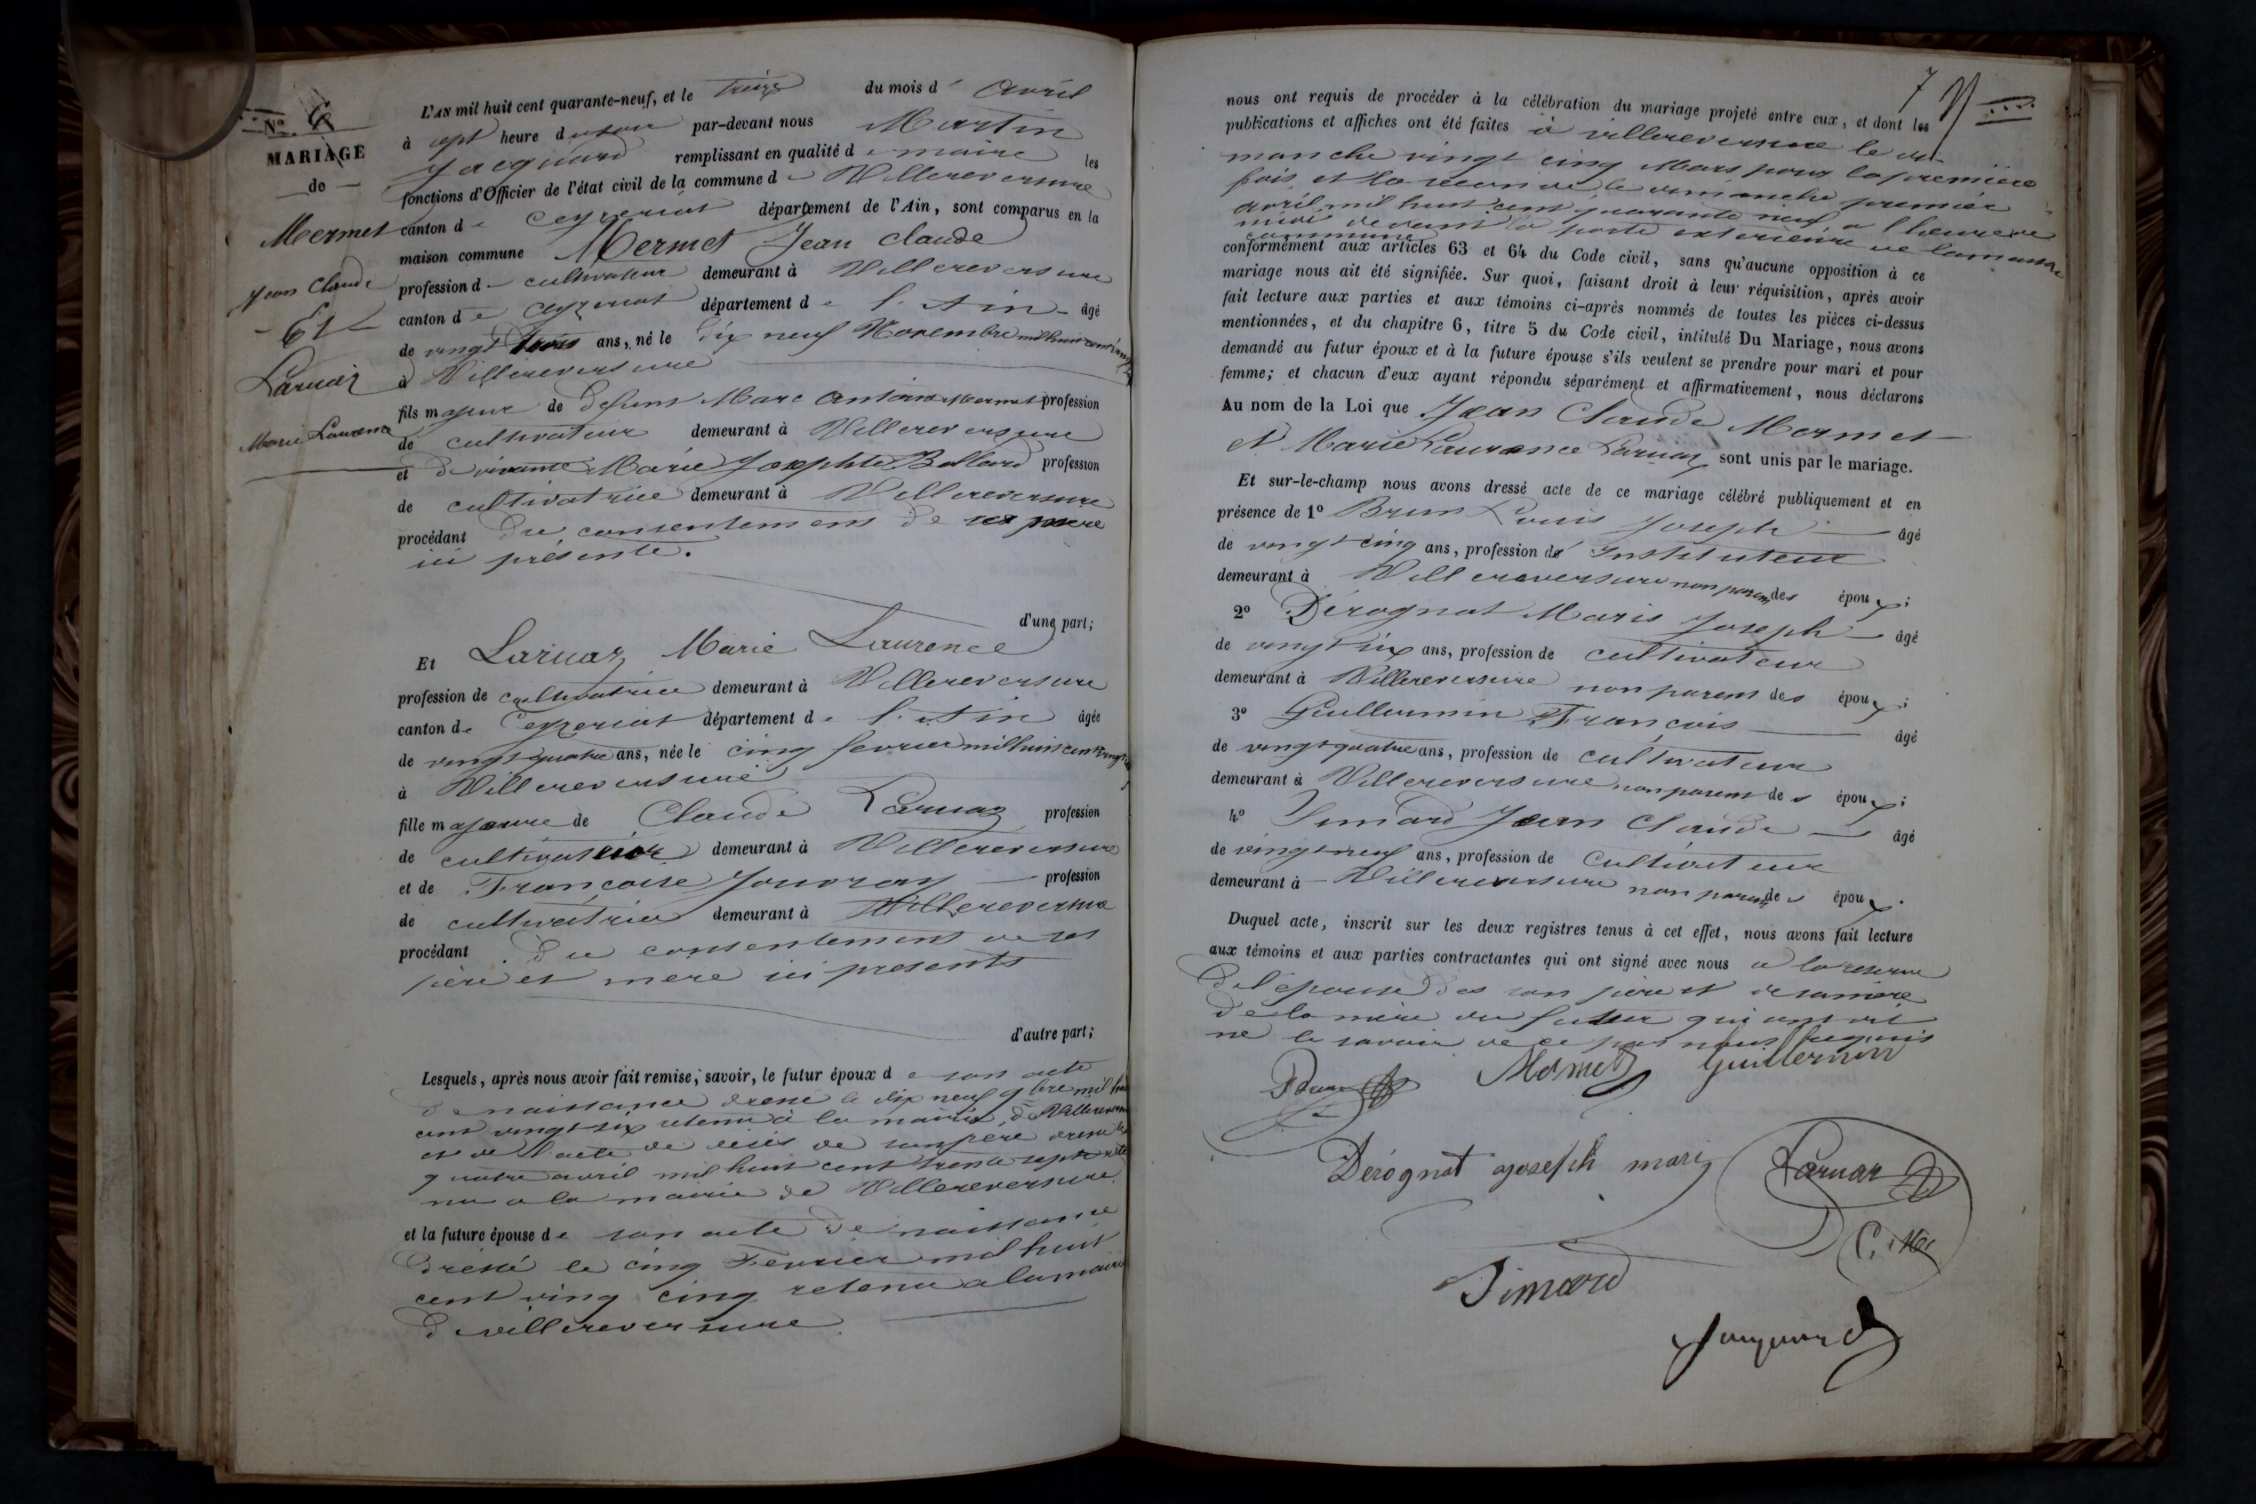 N° 6
MARIAGE
de
Mermet
Jean Claude
Et
Laruaz
Marie Laurence
L'AN mil huit cent quarante-neuf, et le treize du mois d' avril
à sept heure du soir par-devant nous Martin
Jacquard remplissant en qualité de maire les
fonctions d'Officier de l'état civil de la commune de Villereversure
canton de Ceyzeriat département de l'Ain, sont comparus en la
maison commune Mermet Jean Claude
profession de cultivateur demeurant à Villereversure
canton de Ceyzeriat département de l'Ain âgé
de vingt trois ans, né le dix neuf Novembre mil huit cent
à Villereversure
fils majeur de defunt Marc Antoine Mermet profession
de cultivateur demeurant à Villereversure
et de vivante Marie Josephte Ballard profession
de cultivatrice demeurant à Villereversure
procédant du consentement de sa mère
ici présente.
d'une part;
Et Laruaz Marie Laurence
profession de cultivatrice demeurant à Villereversure
canton de Ceyzeriat département de l'Ain âgée
de vingt quatre ans, née le cinq fevrier mil huit cent vingt
à Villereversure
fille majeure de Claude Laruaz profession
de cultivateur demeurant à Villereversure
et de Françoise Jouvray profession
de cultivatrice demeurant à Villereversure
procédant du consentement de ses
père et mere ici presents
d'autre part;
Lesquels, après nous avoir fait remise, savoir, le futur époux de son acte
de naissance dressé le dix neuf 9bre mil huit
cent vingt six retenu à la mairie de Villereversure
et de l'acte de décès de son père dressé le
quatre avril mil huit cent trente sept rete
nu a la mairie de Villereversure
et la future épouse de son acte de naissance
dressé le cinq Fevrier mil huit
cent ving cinq retenu a la mairie
de villereversure
7
nous ont requis de procéder à la célébration du mariage projeté entre eux, et dont les
publications et affiches ont été faites à villereversure le di-
manche vingt cinq Mars pour la premiere
fois et la seconde le dimanche premier
avril mil huit cent quarante neuf a l'heure de
midi devant la porte exterieure de la maison
commune
conformément aux articles 63 et 64 du Code civil, sans qu'aucune opposition à ce
mariage nous ait été signifiée. Sur quoi, faisant droit à leur réquisition, après avoir
fait lecture aux parties et aux témoins ci-après nommés de toutes les pièces ci-dessus
mentionnées, et du chapitre 6, titre 5 du Code civil, intitulé Du Mariage, nous avons
demandé au futur époux et à la future épouse s'ils veulent se prendre pour mari et pour
femme; et chacun d'eux ayant répondu séparément et affirmativement, nous déclarons
Au nom de la Loi que Jean Claude Mermet
et Marie Laurence Laruaz sont unis par le mariage.
Et sur-le-champ nous avons dressé acte de ce mariage célébré publiquement et en
présence de 1° Brun Louis Joseph âgé
de vingt cinq ans, profession d' Instituteur
demeurant à Villereversure non parent des époux;
2° Dérognat Marie Joseph âgé
de vingt six ans, profession de cultivateur
demeurant à Villereversure non parent des époux;
3° Guillermin François âgé
de vingt quatre ans, profession de cultivateur
demeurant à Villereversure non parent des époux;
4° Simard Jean Claude âgé
de vingt neuf ans, profession de Cultivateur
demeurant à Villereversure non parent des époux.
Duquel acte, inscrit sur les deux registres tenus à cet effet, nous avons fait lecture
aux témoins et aux parties contractantes qui ont signé avec nous a la reserve
de l'épouse de son père et de sa mère
de la mère du futur qui ont dit
ne le savoir de ce par nous requis
Mermet Guillermin
Dérognat Joseph mari Laruaz
Simard
Jacquard